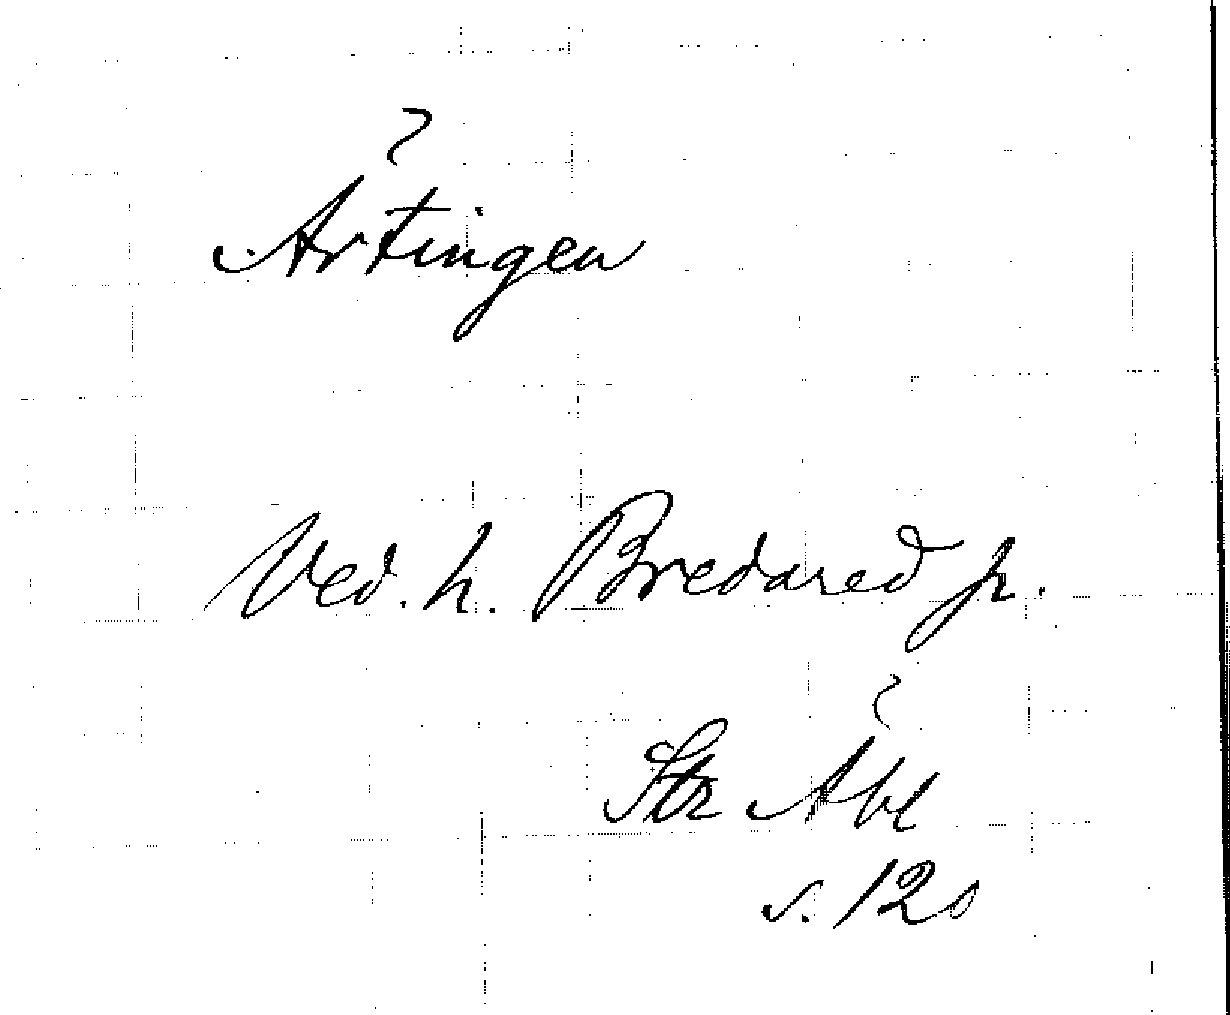 Årtingen
Ved. h. Bredared sn.
Str Åvl
s. 120